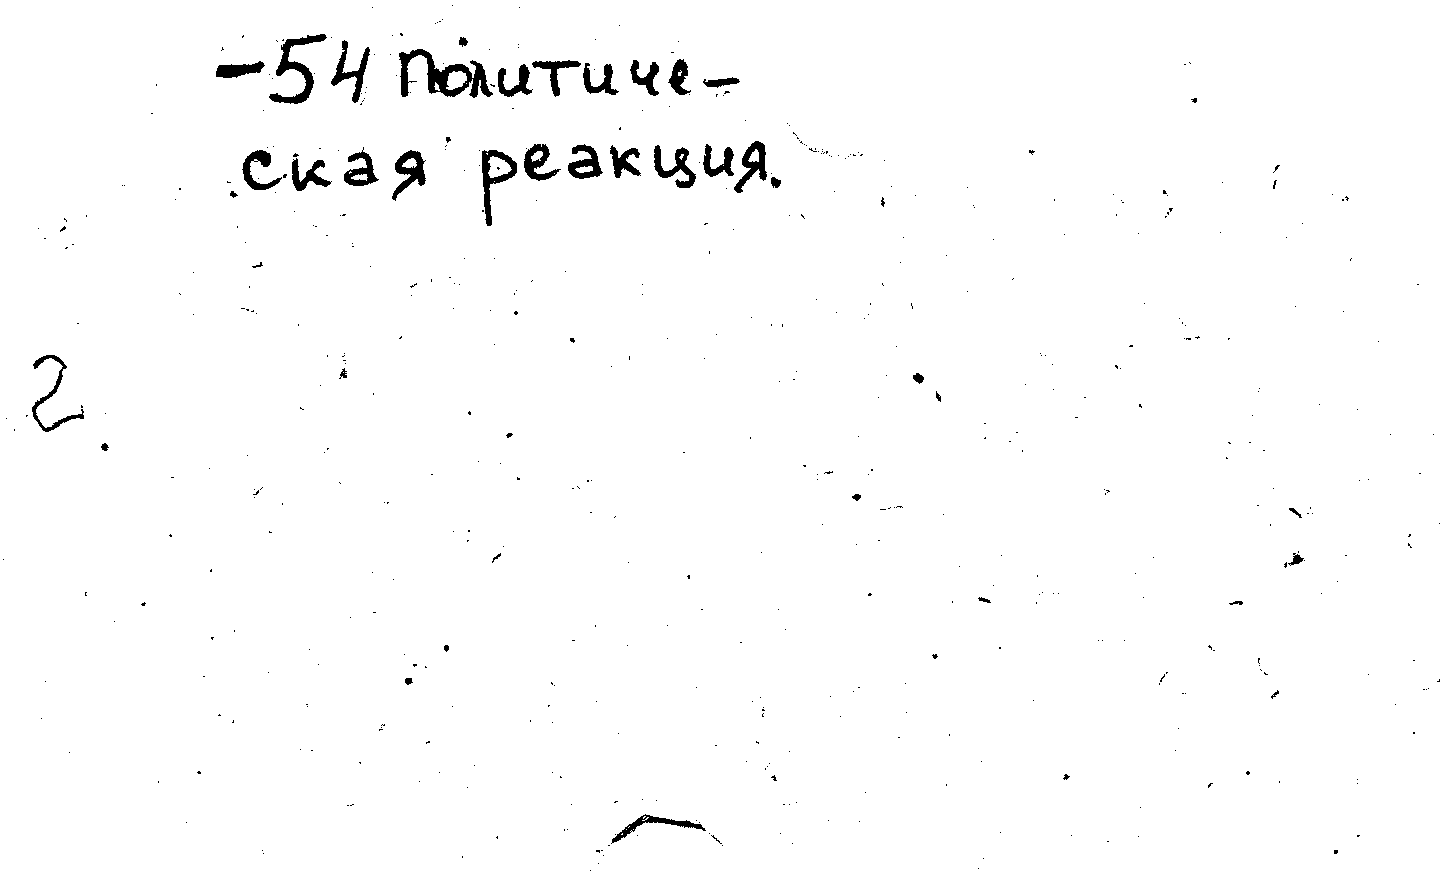 -54 Политиче-
ская реакция.
2